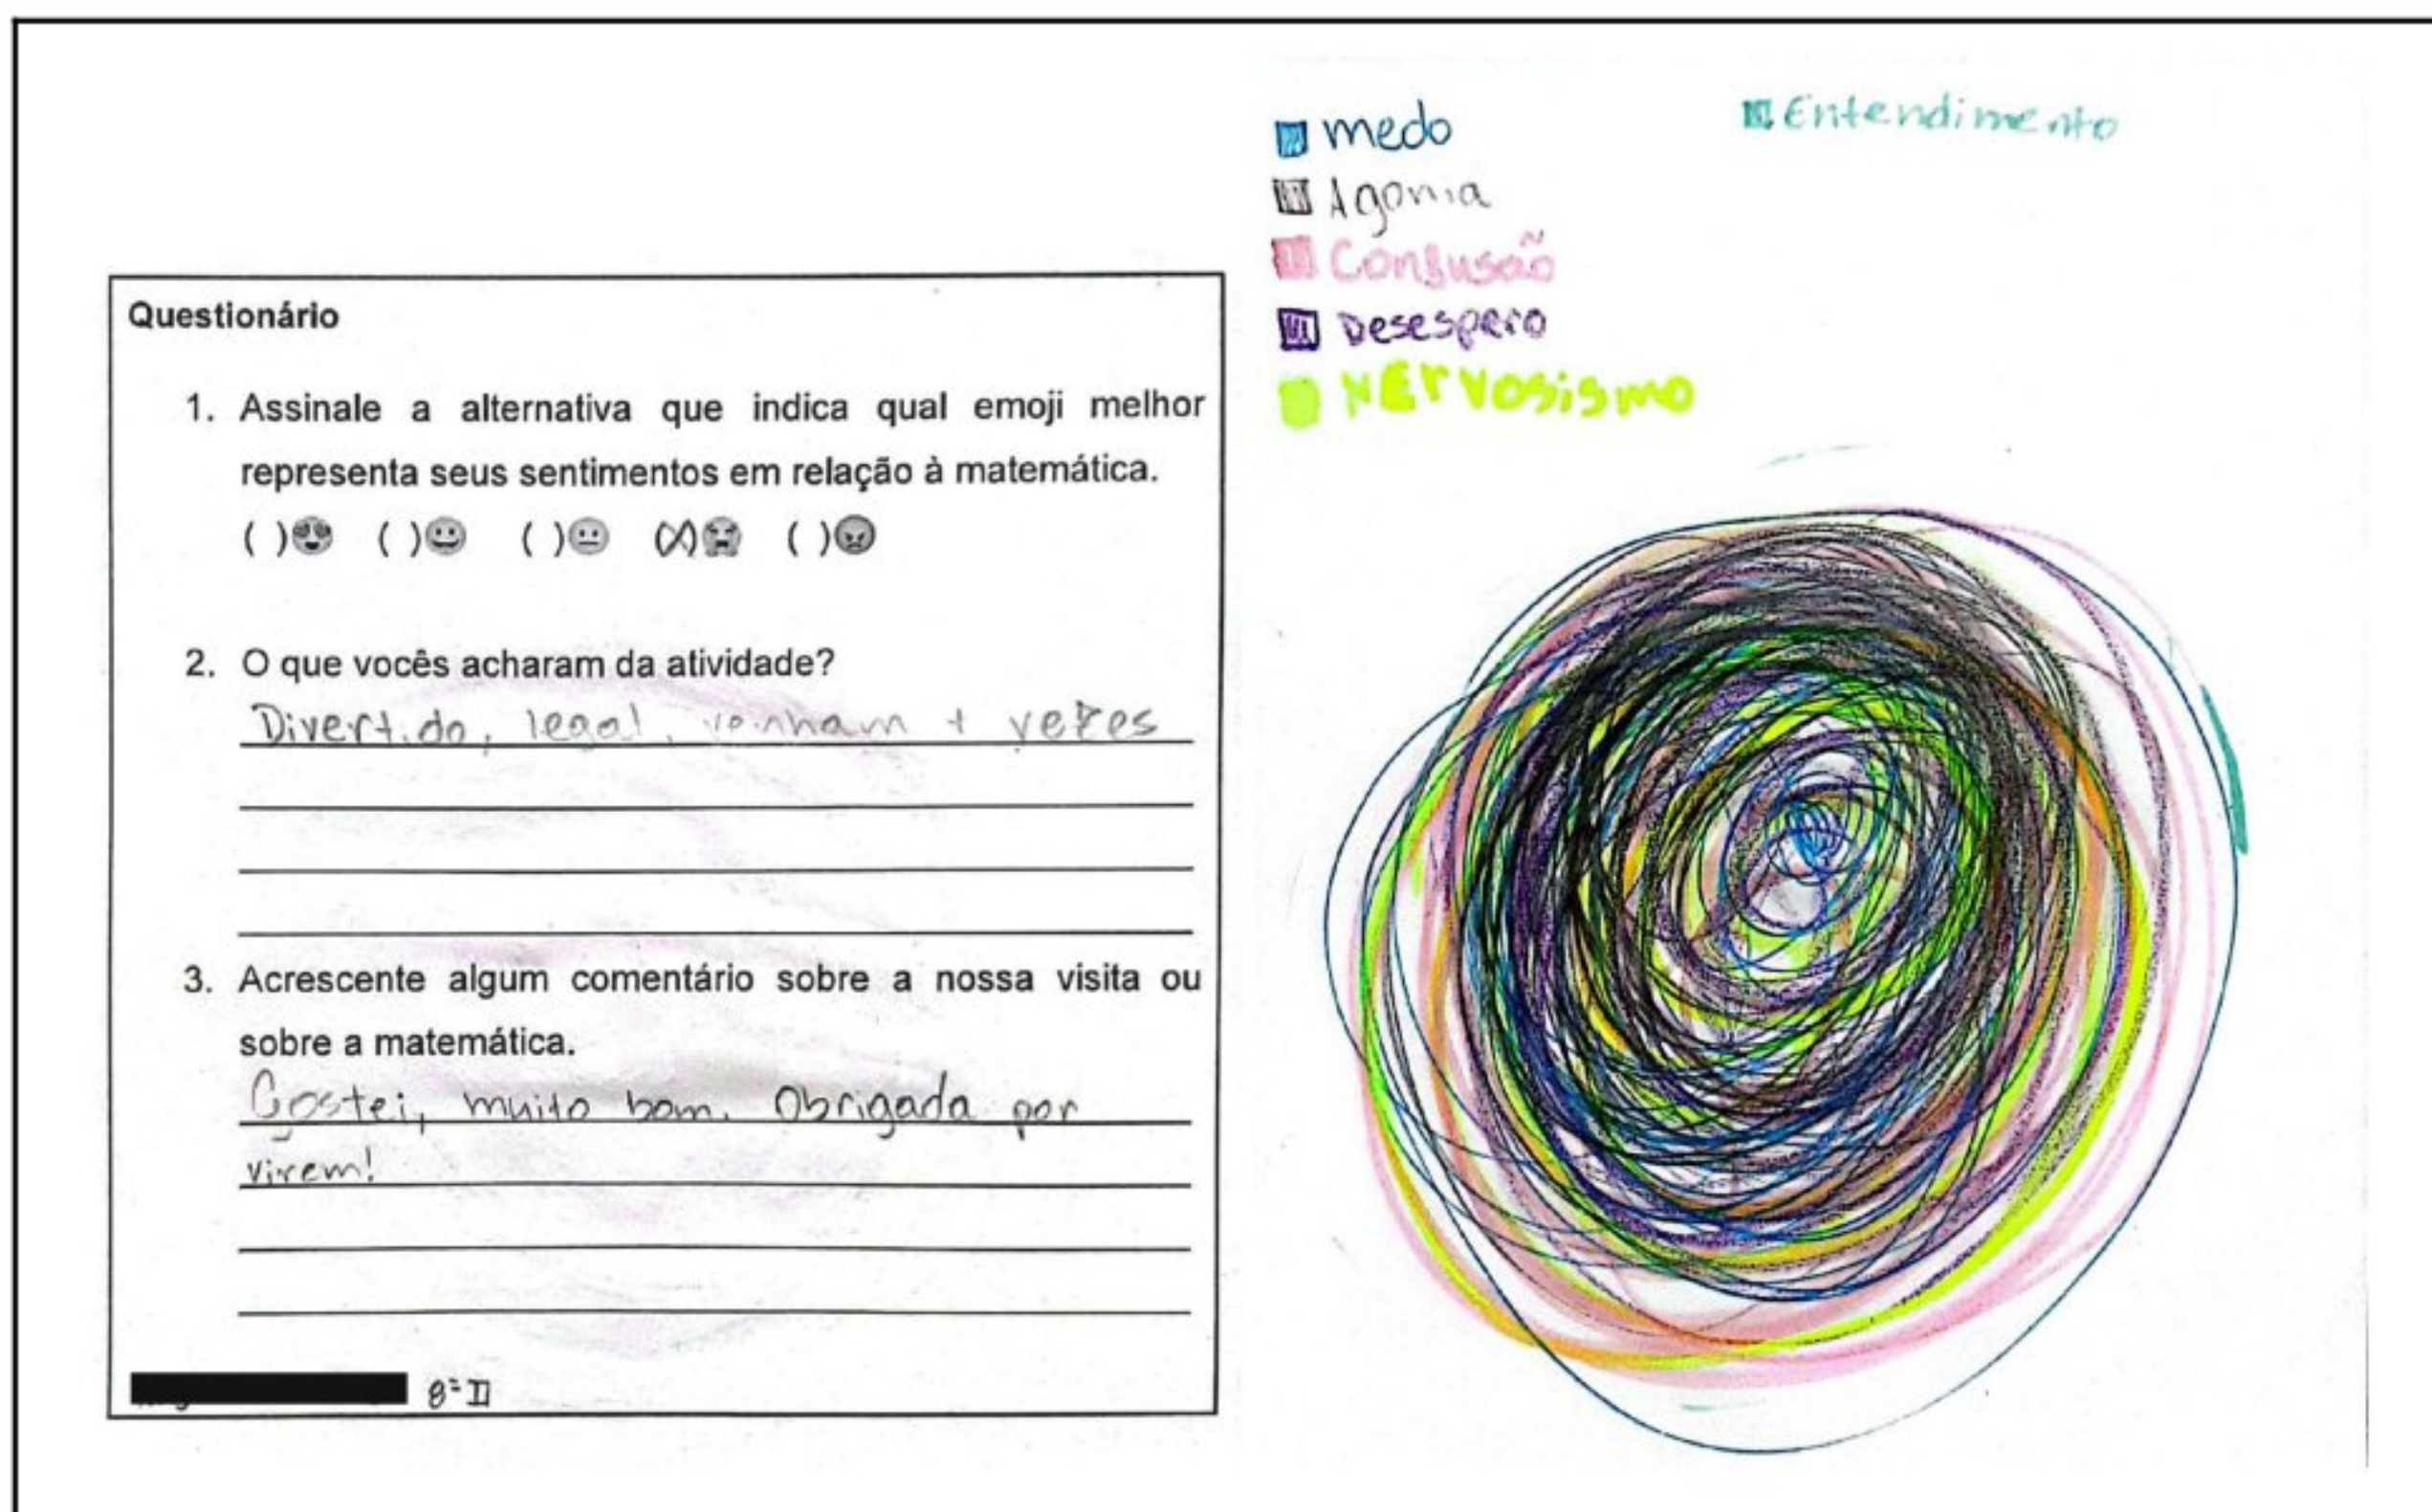 Questionário
1. Assinale a alternativa que indica qual emoji melhor
representa seus sentimentos em relação à matemática.
( )😍 ( )😀 ( )😐 (X)😭 ( )😠
2. O que vocês acharam da atividade?
Divertido, legal, venham + vezes
3. Acrescente algum comentário sobre a nossa visita ou
sobre a matemática.
Gostei, muito bom. Obrigada por
virem!
8º II
medo
Agonia
Confusão
Desespero
NErvosismo
Entendimento